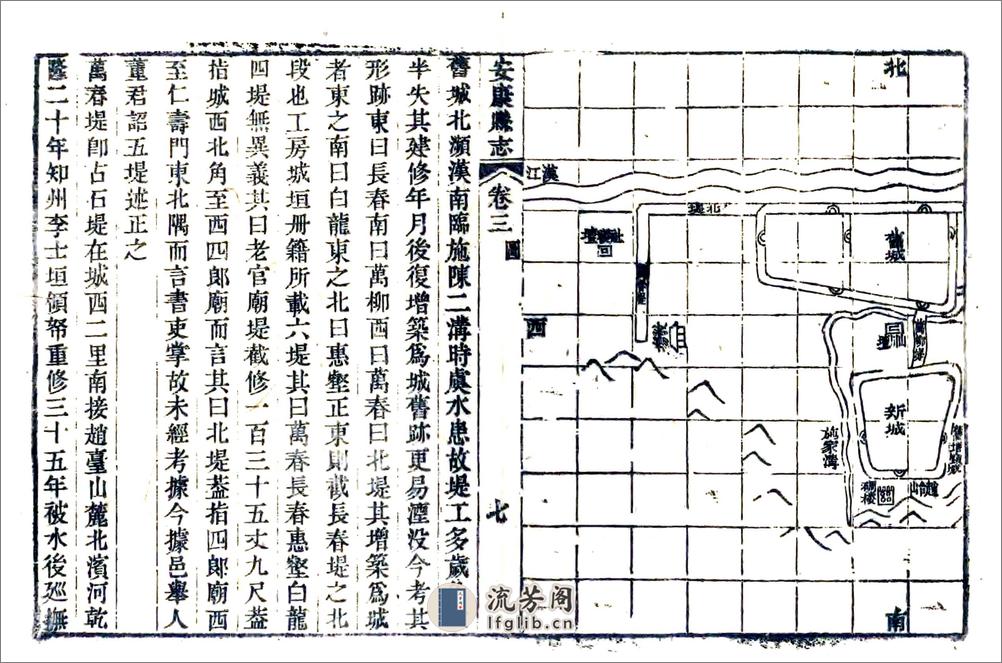 北
漢江
北堤
社稷壇
萬春堤
西
舊城
萬柳堤
新城
施家溝
南
安康縣志
卷三
圖
七
舊城北瀕漢南臨施陳二溝時虞水患故堤工多歲
半失其建修年月後復增築爲城舊跡更易湮没今考其
形跡東曰長春南曰萬柳西曰萬春曰北堤其增築爲城
者東之南曰白龍東之北曰惠壑正東則截長春堤之北
段也工房城垣册籍所載六堤其曰萬春長春惠壑白龍
四堤無異義其曰老官廟堤截修一百三十五丈九尺蓋
指城西北角至西四郎廟而言其曰北堤蓋指四郎廟西
至仁壽門東北隅而言書吏掌故未經考據今據邑舉人
董君詔五堤述正之
萬春堤卽古石堤在城西二里南接趙臺山麓北濱河乾
隆二十年知州李士垣領帑重修三十五年被水後廵撫
流芳阁
lfglib.cn